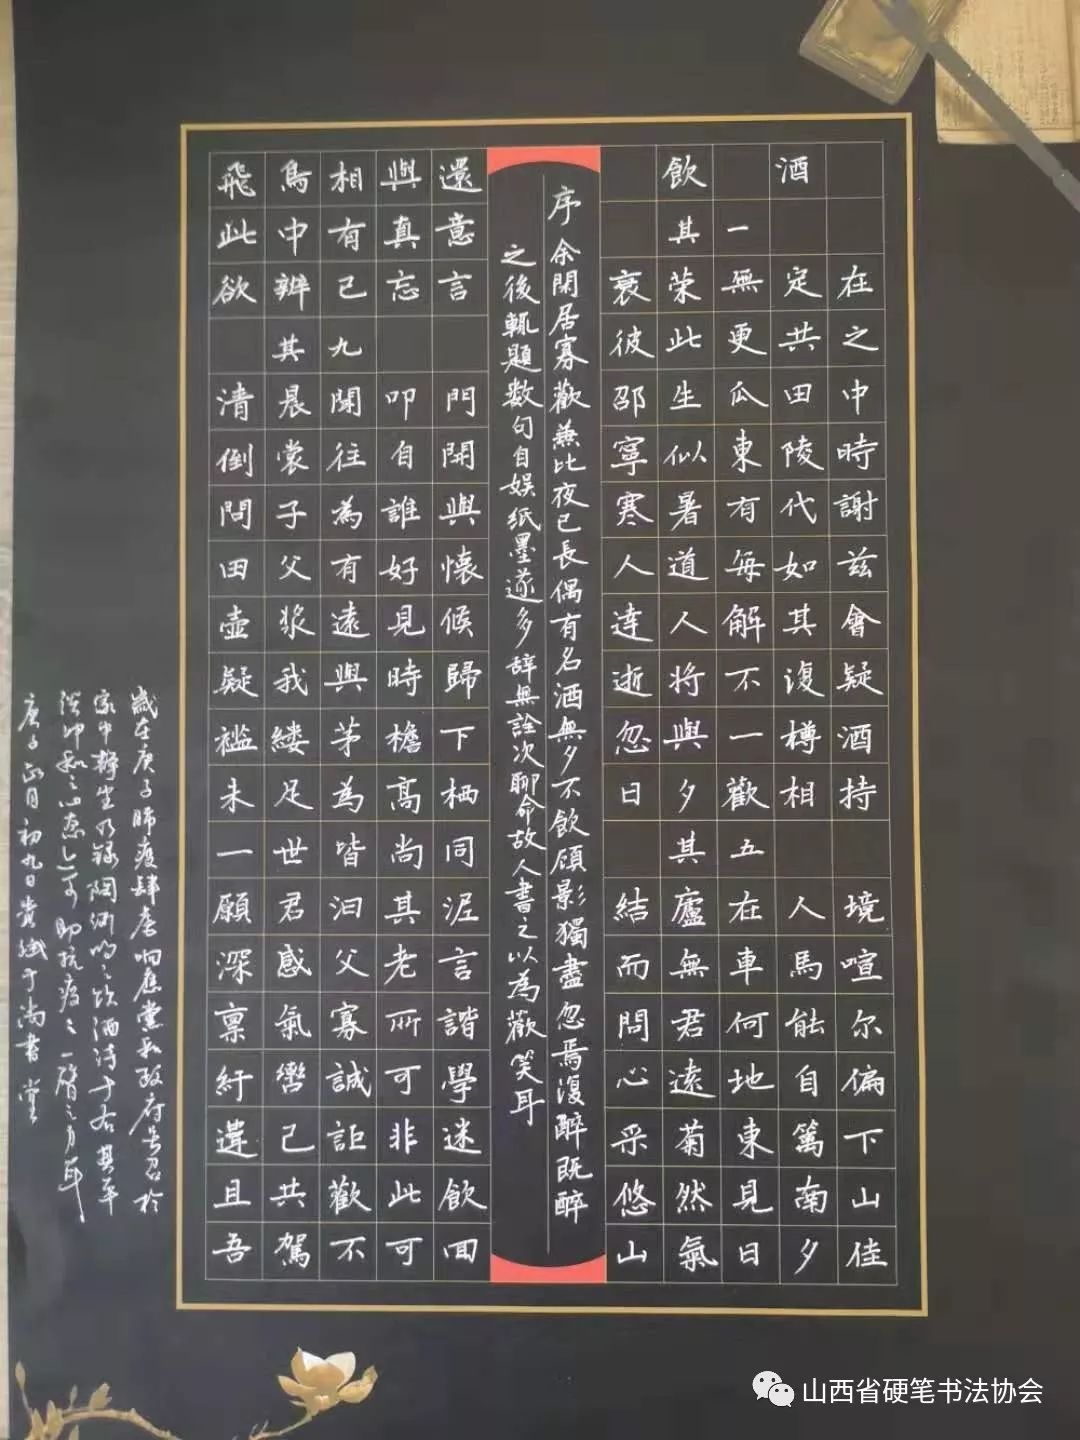 飲 酒
其一
衰榮無定在
彼此更共之
邵生瓜田中
寧似東陵時
寒暑有代謝
人道每如茲
達人解其會
逝將不復疑
忽與一樽酒
日夕歡相持
其五
結廬在人境
而無車馬喧
問君何能尔
心遠地自偏
采菊東篱下
悠然見南山
山氣日夕佳
序 余閑居寡歡兼比夜已長偶有名酒無夕不飲顧影獨盡忽焉復醉既醉
之後輒題數句自娱纸墨遂多辞無詮次聊命故人書之以為歡笑耳
飛鳥相與還
此中有真意
欲辨已忘言
其九
清晨聞叩門
倒裳往自開
問子為誰與
田父有好懷
壺漿遠見候
疑我與時歸
襤縷茅檐下
未足為高栖
一世皆尚同
願君汩其泥
深感父老言
稟氣寡所諧
紆轡誠可學
違己詎非迷
且共歡此飲
吾駕不可回
歲在庚子肺疫肆虐响應黨和政府号召於
家中靜坐乃録陶渊明之饮酒诗于右其平
淡冲和之心态亦可助抗疫之一臂之力耳
庚子正月初九日于尚書堂
山西省硬笔书法协会